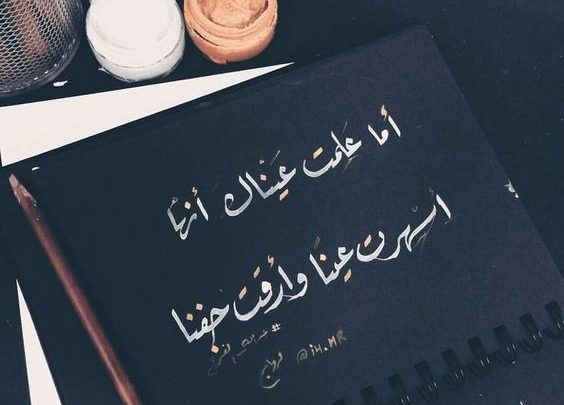 أما عَلِمت عَيْناك أنها
أسهرت عيناً وأرقت جفنا
@i4.MR